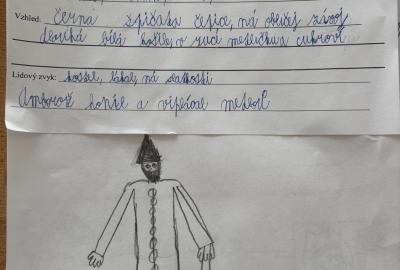 Vzhled: černá špičatá čepice, má obličej závoj
dlouhá bílá košile, v ruci metličku a cukroví
Lidový zvyk: kostel, lákal, na sladkosti
Ambrož honil a vyplácel metlou